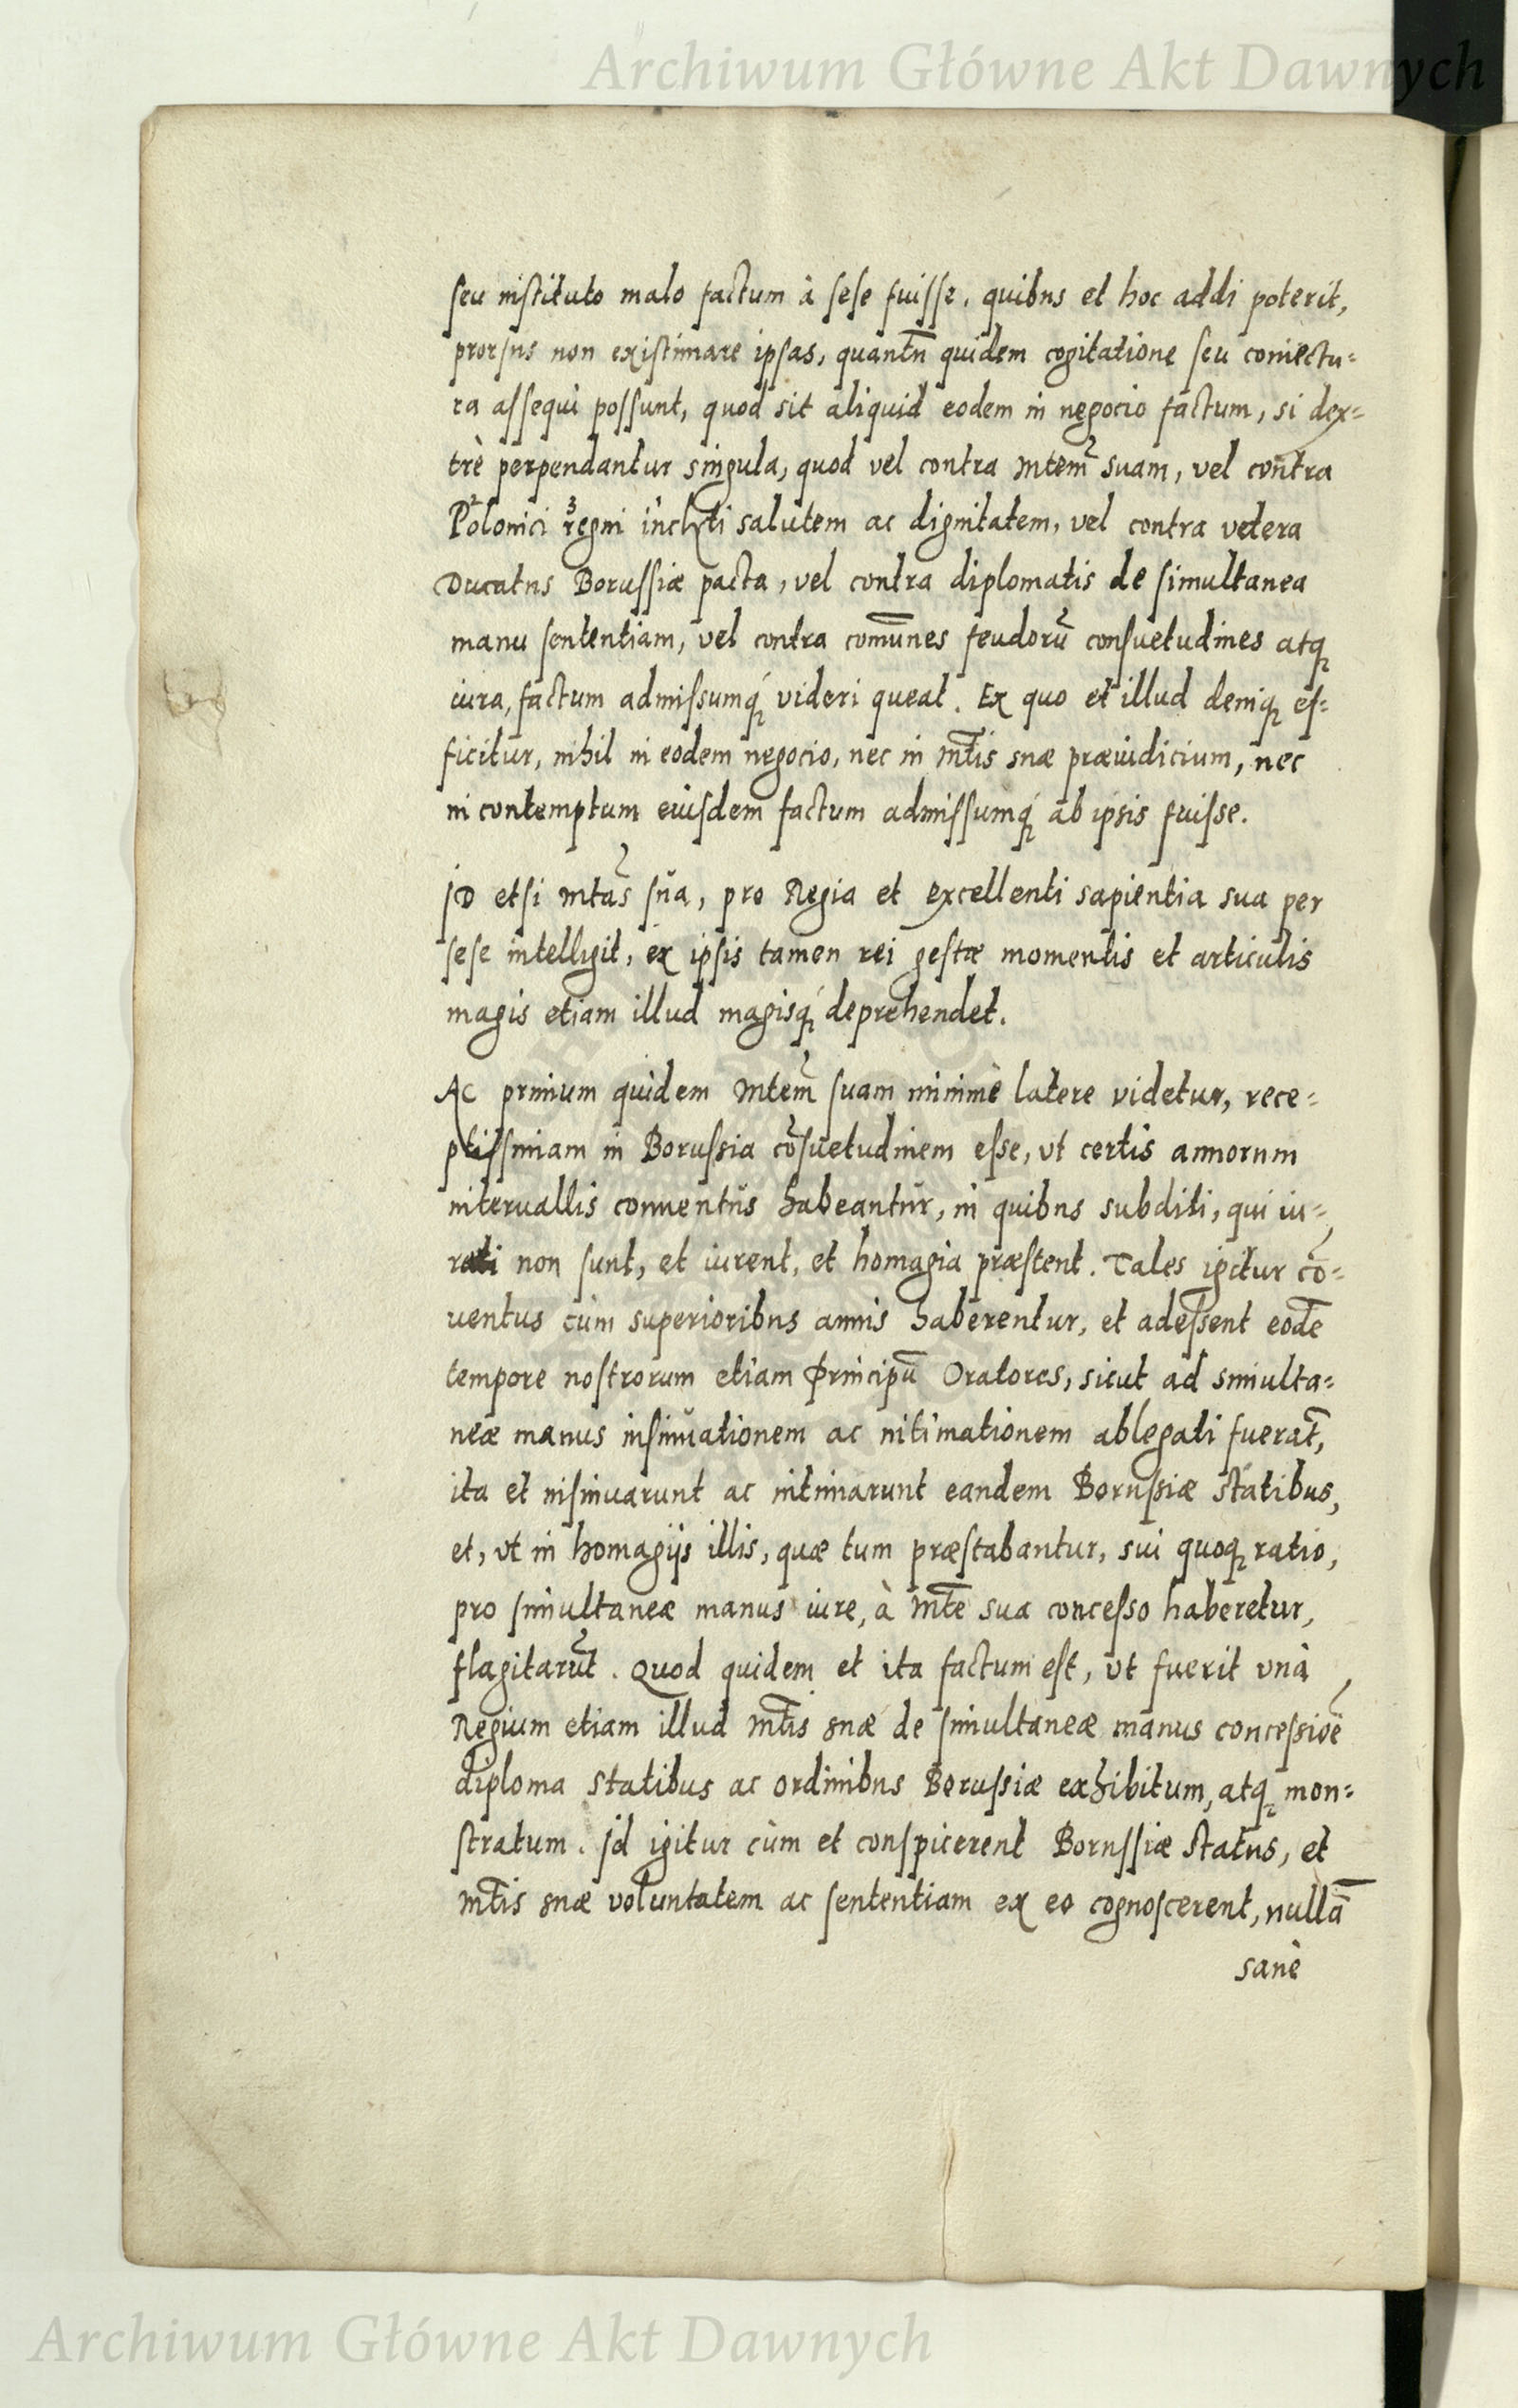 Archiwum Główne Akt Dawnych
seu instituto malo factum à sese fuisse. quibus et hoc addi poterit,
prorsus non existimare ipsas, quantũ quidem cogitatione seu coniectu=
ra assequi possunt, quod sit aliquid eodem in negocio factum, si dex=
trè perpendantur singula, quod vel contra Mtem suam, vel contra
Polonici regni inclyti salutem ac dignitatem, vel contra vetera
Ducatus Borussiæ pacta, vel contra diplomatis de simultanea
manu sententiam, vel contra com̃unes feudorũ consuetudines atq
iura, factum admissumq́ videri queat. Ex quo et illud deniq ef=
ficitur, nihil in eodem negocio, nec in Mtis suæ præiudicium, nec
in contemptum eiusdem factum admissumq́ ab ipsis fuisse.
Id etsi Mtas sũa, pro Regia et excellenti sapientia sua per
sese intelligit, ex ipsis tamen rei gestæ momentis et articulis
magis etiam illud magisq́ deprehendet.
Ac primum quidem Mtem suam minimè latere videtur, rece=
ptissimam in Borussia cõsuetudinem esse, vt certis annorum
interuallis conuentus habeantur, in quibus subditi, qui iu=
rati non sunt, et iurent, et homagia præstent. Tales igitur cõ=
uentus cùm superioribus annis haberentur, et adessent eodẽ
tempore nostrorum etiam Principũ Oratores, sicut ad simulta=
neæ manus insinuationem ac intimationem ablegati fuerãt,
ita et insinuarunt ac intimarunt eandem Borussiæ statibus,
et, vt in homagijs illis, quæ tum præstabantur, sui quoq ratio,
pro simultaneæ manus iure, à Mte sua concesso haberetur,
flagitarũt. Quod quidem et ita factum est, vt fuerit vnà
Regium etiam illud Mtis suæ de simultaneæ manus concessiõe
diploma statibus ac ordinibus Borussiæ exhibitum, atq mon=
stratum. Id igitur cùm et conspicerent Borussiæ status, et
Mtis suæ voluntatem ac sententiam ex eo cognoscerent, nullã
sanè
Archiwum Główne Akt Dawnych